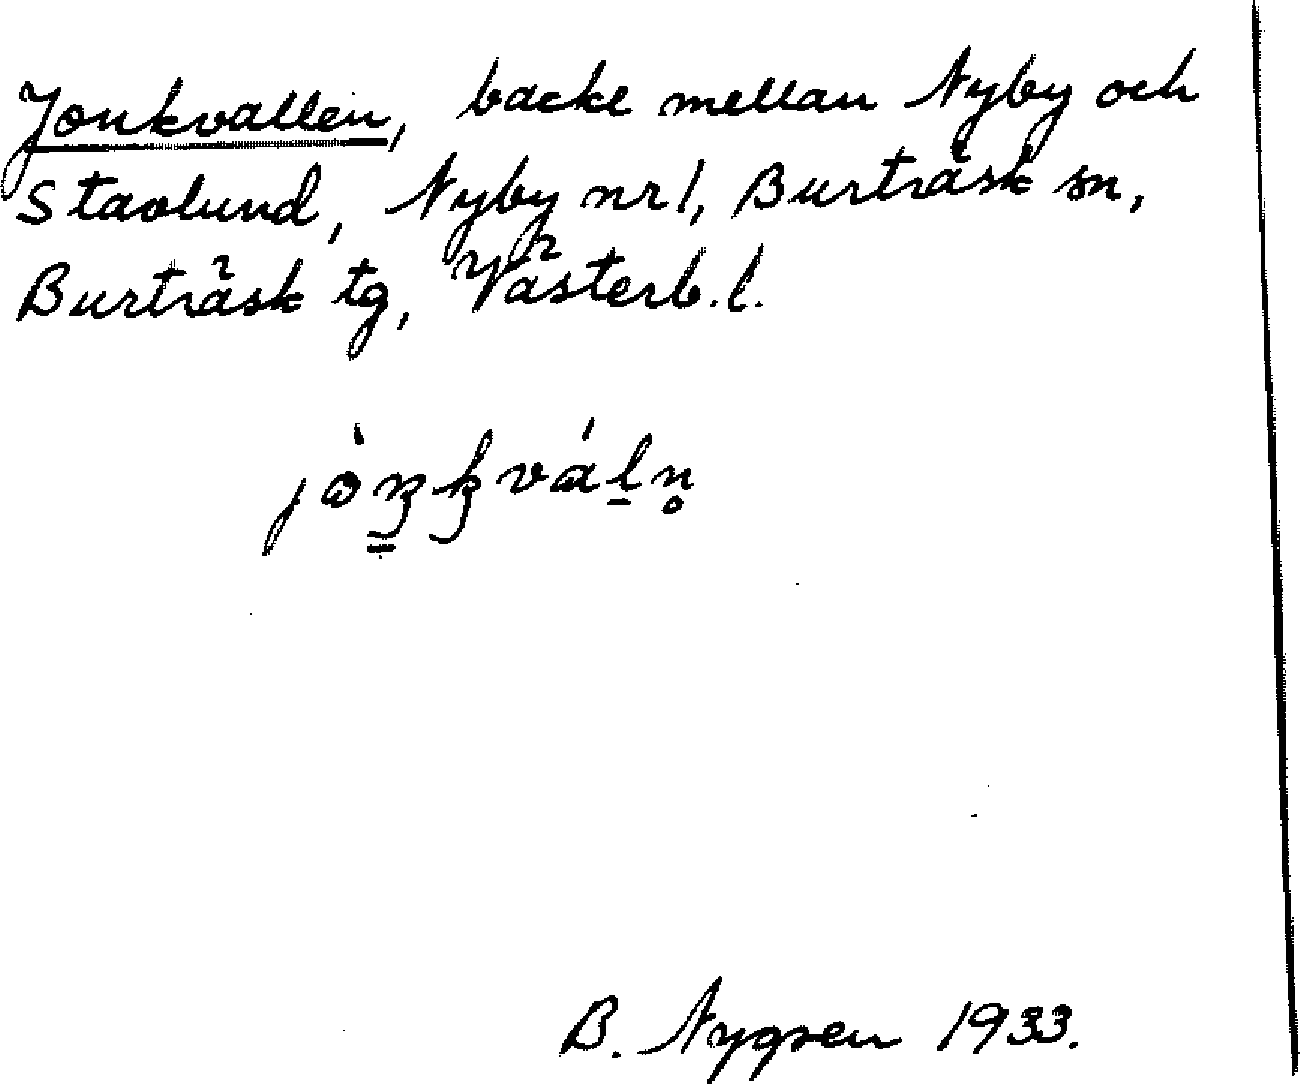 Jonkvallen, backe mellan Nyby och
Stavlund, Nyby nr 1, Burträsk sn,
Burträsk tg, Västerb. l.
B. Nygren 1933.